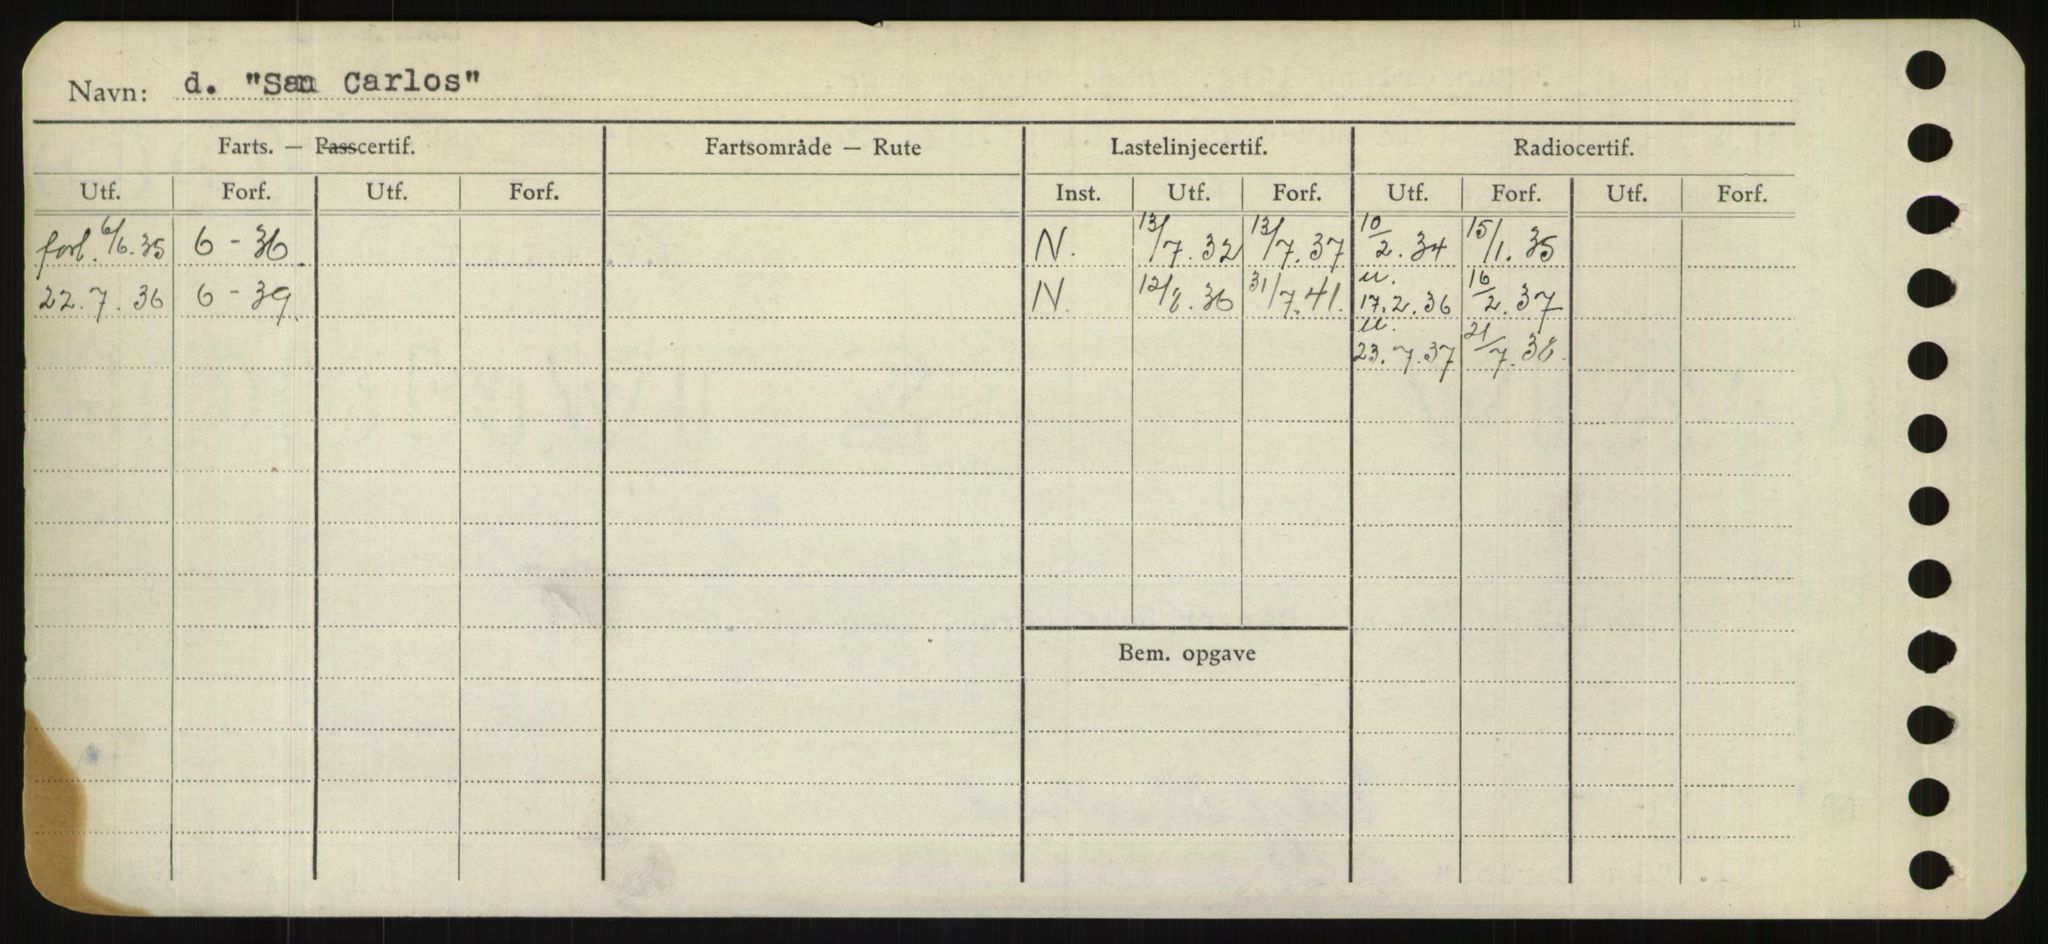 Navn: d. "San Carlos"
Farts. — Passcertif. Fartsområde — Rute Lastelinjecertif. Radiocertif.
Utf. Forf. Utf. Forf. Inst. Utf. Forf. Utf. Forf. Utf. Forf.
forl. 6/6.35 6 - 36 N. 13/7.32 13/7.37 10/2.34 15/1.35
22.7.36 6 - 39 N. 12/8.36 31/7.41. u. 17.2.36 16/2.37
u. 23.7.37 21/7.38.
Bem. opgave